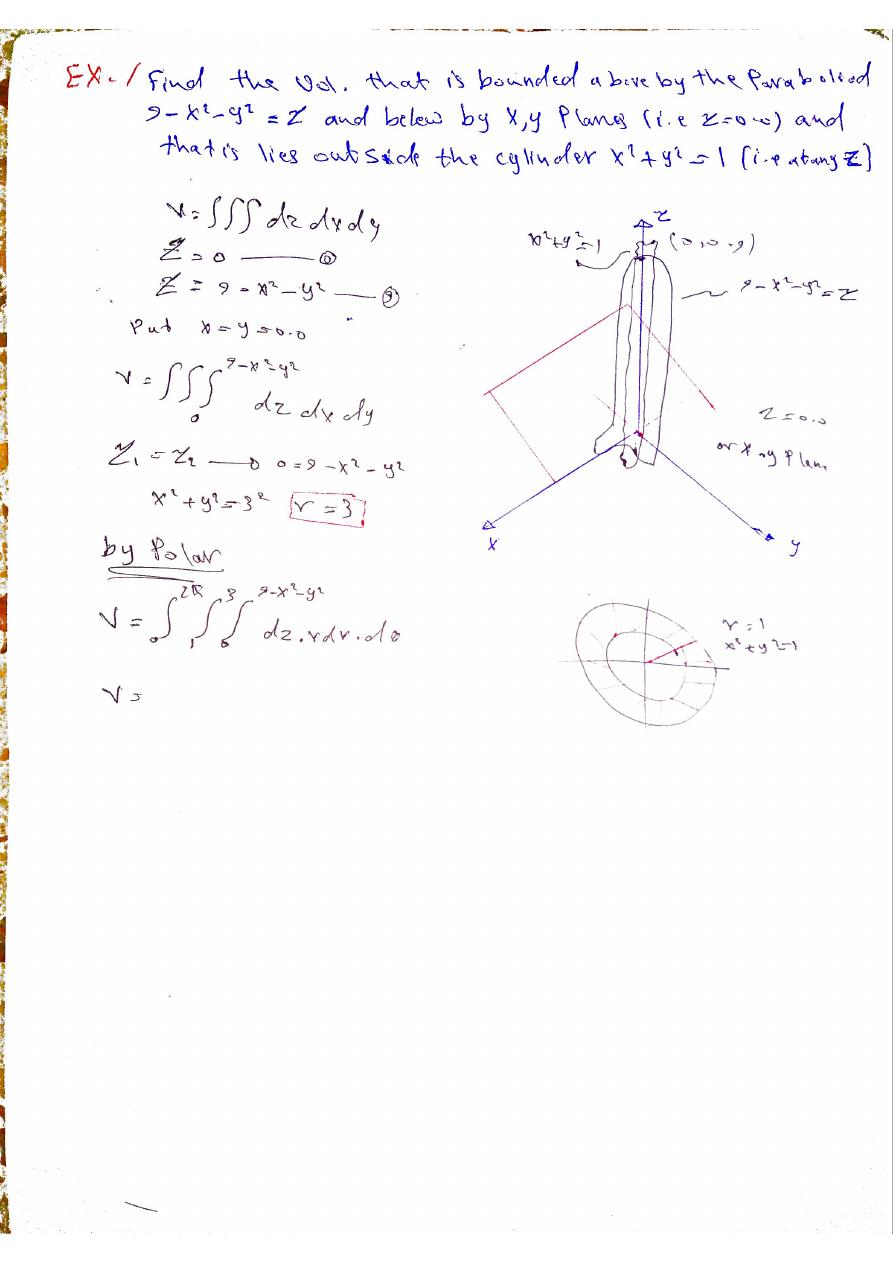 EX./ Find the Vol. that is bounded above by the Paraboliod
9-x²-y² = Z and below by X,y Planes (i.e z=0.0) and
that is lies outside the cylinder x²+y²=1 (i.e at any Z)
V=∫∫∫ dz dx dy
Z=0 —— ⓪
Z = 9-x²-y² —— ⑨
Put x=y=0.0
V=∫∫∫₀^(9-x²-y²) dz dx dy
Z₁=Z₂ —→ 0=9-x²-y²
x²+y²=3² r=3
by Polar
V=∫₀^2π ∫₁^3 ∫₀^(9-x²-y²) dz.rdr.dθ
V=
Z
x²+y²=1
(0,0,9)
9-x²-y²=Z
Z=0.0
or X,y Plan
X
y
r=1
x²+y²=1